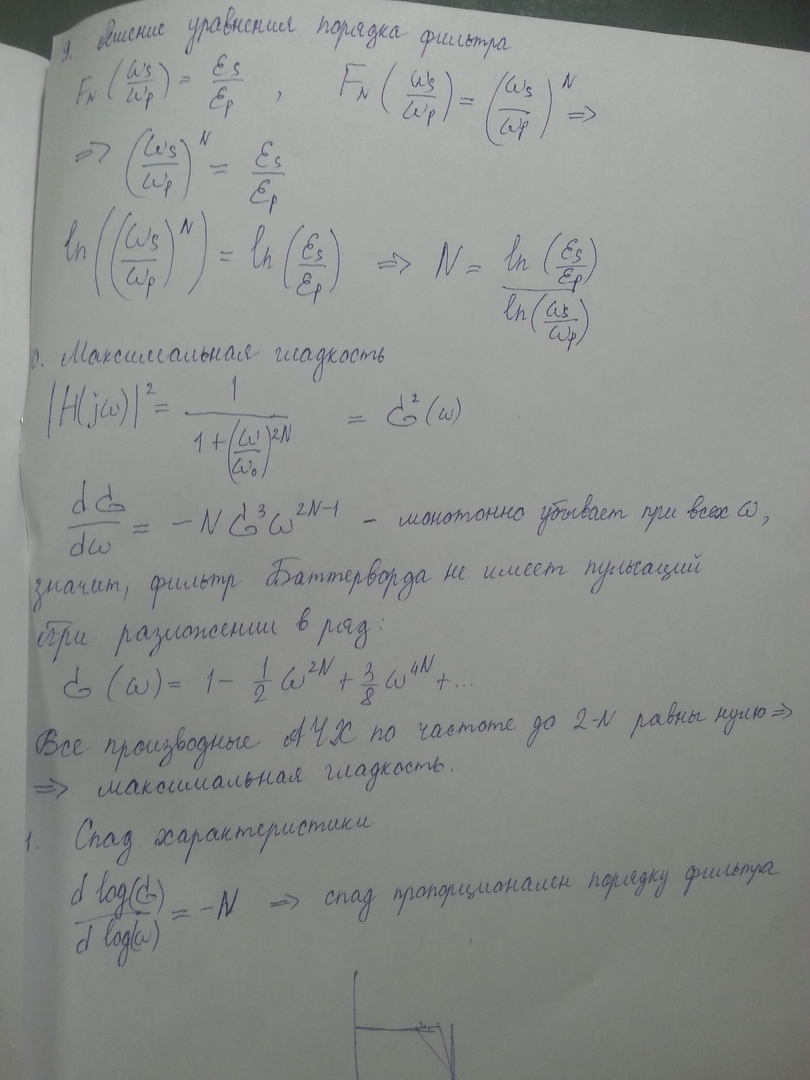 9. Решение уравнения порядка фильтра
F_N (ωs/ωp) = εs/εp , F_N (ωs/ωp) = (ωs/ωp)^N ⇒
⇒ (ωs/ωp)^N = εs/εp
ln((ωs/ωp)^N) = ln(εs/εp) ⇒ N = ln(εs/εp) / ln(ωs/ωp)
0. Максимальная гладкость
|H(jω)|² = 1 / (1+(ω/ω₀)^2N) = G²(ω)
dG/dω = -N G³ ω^2N-1 - монотонно убывает при всех ω,
значит, фильтр Баттерворда не имеет пульсаций
При разложении в ряд:
G (ω) = 1 - 1/2 ω^2N + 3/8 ω^4N + ...
Все производные АЧХ по частоте до 2-N равны нулю ⇒
⇒ максимальная гладкость.
1. Спад характеристики
d log(G) / d log(ω) = -N ⇒ спад пропорционален порядку фильтра